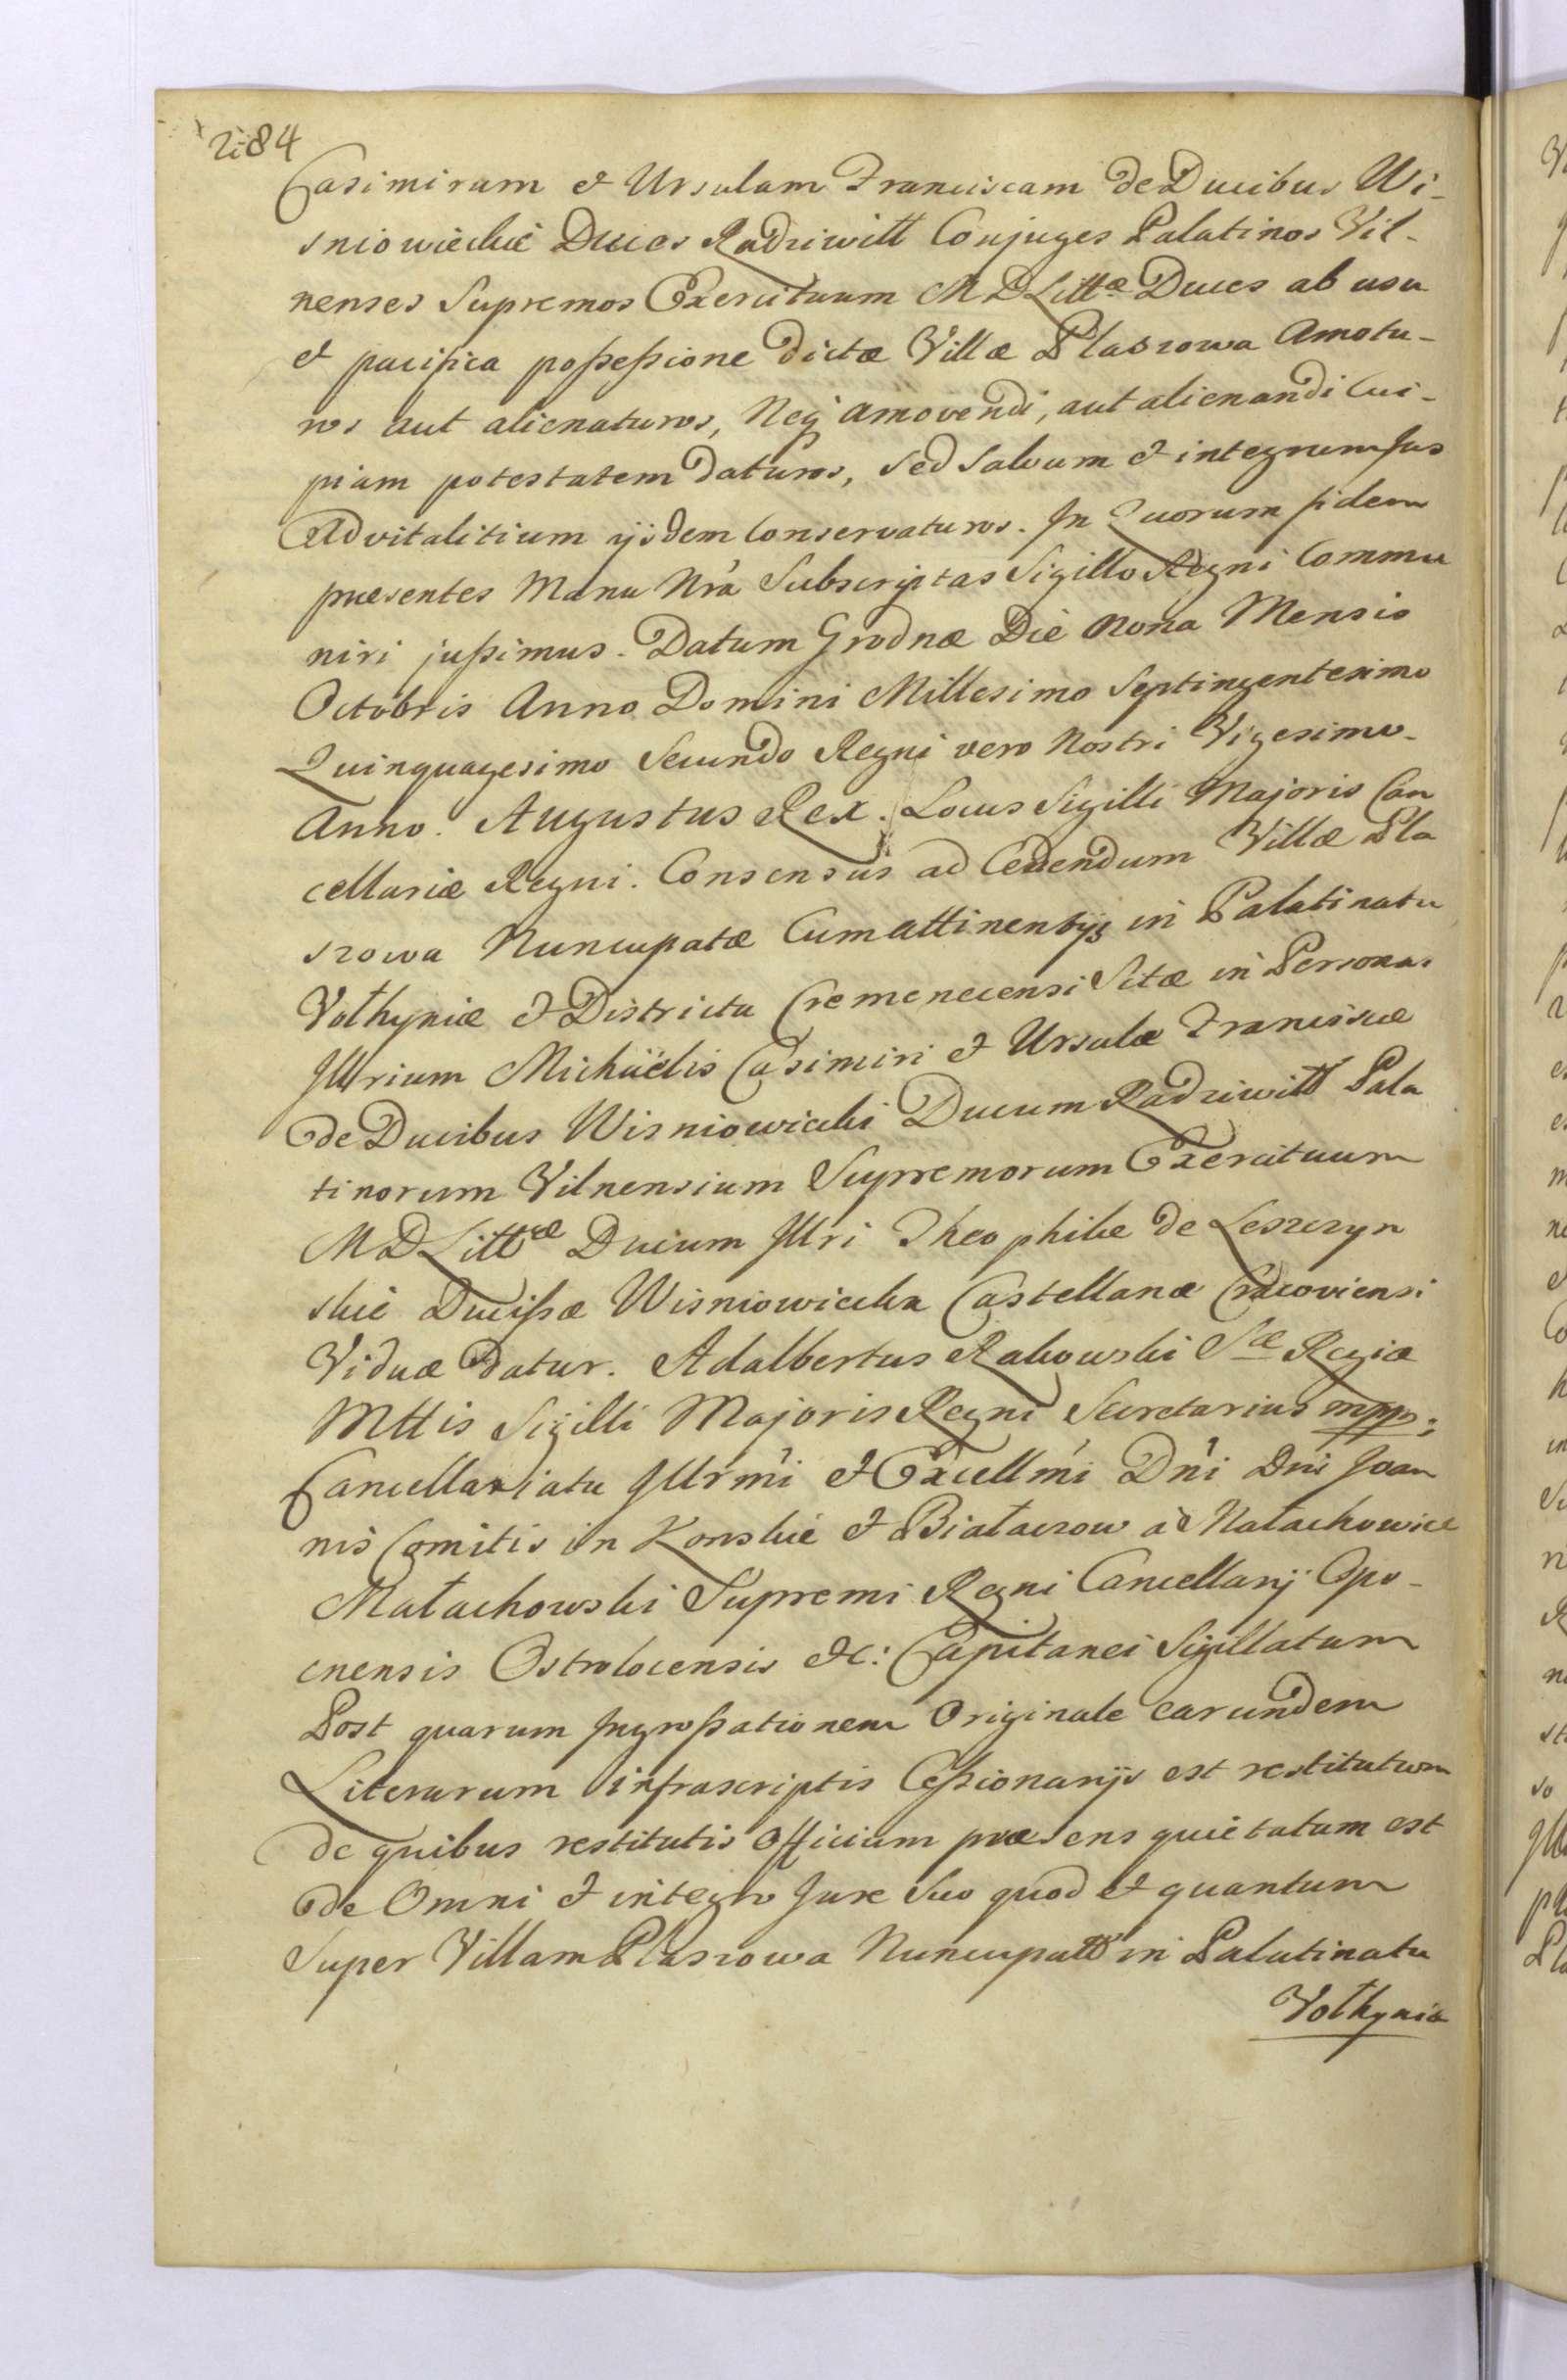 2184
Casimirum et Ursulam Franciscam de Ducibus Wi-
sniowieckie Duces Radziwiłł Conjuges Palatinos Vil-
nenses Supremos Exercituum M D Littæ Duces ab usu
et pacifica possessione dictæ Villæ Płaszowa Amotu-
ros aut alienaturos, Neq amovendi, aut alienandi Cui-
piam potestatem daturos, sed Salvum et integrum Jus
Advitalitium ijsdem Conservaturos. In Quorum fidem
præsentes Manu Nrà Subscriptas Sigillo Regni Commu
niri jussimus. Datum Grodnæ Die Nona Mensis
Octobris Anno Domini Millesimo Septingentesimo
Quinquagesimo Secundo Regni vero Nostri Vigesimo
Anno. Augustus Rex. Locus Sigilli Majoris Can
cellariæ Regni. Consensus ad Cedendum Villæ Pła
szowa Nuncupatæ Cum attinentijs in Palatinatu
Vołhyniæ et Districtu Cremenecensi Sitæ in Personas
Illrium Michaëlis Casimiri et Ursulæ Franciscæ
de Ducibus Wisniowiecki Ducum Radziwiłł Pala
tinorum Vilnensium Supremorum Exercituum
M D Littæ Ducum Illri Theophilæ de Leszczyn
skie Ducissæ Wisniowiecka Castellanæ Cracoviensi
Viduæ datur. Adalbertus Rakowski Sæ Regiæ
Mttis Sigilli Majoris Regni Secretarius mpp:
Cancellariatu Illrmi et Excellmi Dni Dni Joan
nis Comitis in Konskie et Białaczow a Nałachowice
Małachowski Supremi Regni Cancellarij Opo-
cnensis Ostrolocensis etc: Capitanei Sigillatum
Post quarum Ingrossationem Originale earundem
Literarum infrascriptis Cessionarijs est restitutum
de quibus restitutis Officium præsens quietatum est
de Omni et integro Jure Suo quod et quantum
Super Villam Płaszowa Nuncupatt in Palatinatu
Vołhyniæ